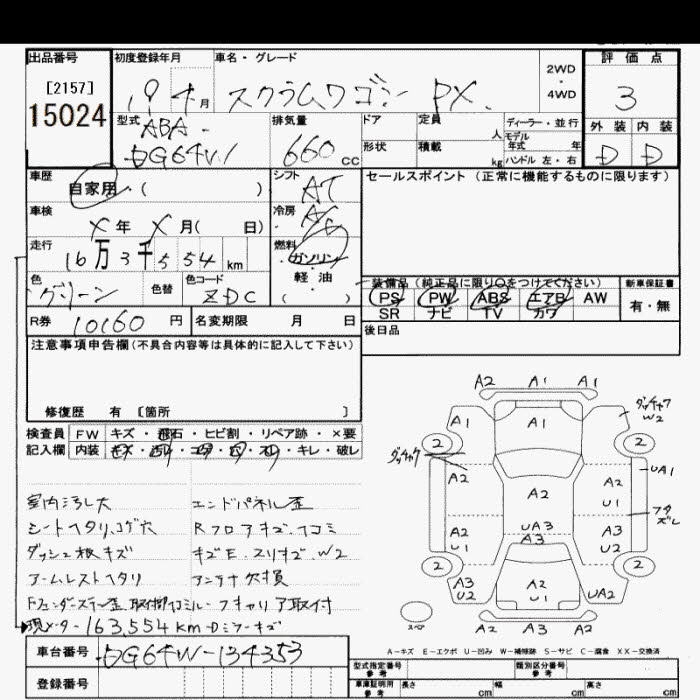 出品番号 初度登録年月 車名・グレード 評価点
[2157]
15024
19 4月 スクラムワゴン PX. 2WD・4WD 3
型式 ABA-DG64W 排気量 660cc ドア 形状 定員 人 積載 kg ディーラー・並行 モデル年式 年 ハンドル 左・右 外装 内装
D D
車歴 自家用・( ) シフト AT セールスポイント (正常に機能するものに限ります)
車検 X年 X月( 日) 冷房 A/C
走行 16万3千554km 燃料 ガソリン・軽油 ( )
色 グリーン 色替 色コード ZDC 装備品(純正品に限り○をつけてください) 新車保証書
PS PW ABS エアB AW 有・無
SR ナビ TV カワ
R券 10160円 名変期限 月 日 後日品
注意事項申告欄(不具合内容等は具体的に記入して下さい)
修復歴 有 [箇所 ]
検査員 FW キズ・飛石・ヒビ割・リペア跡・×要
記入欄 内装 キレ・破レ
室内汚レ大 エンドパネル歪
シートヘタリ、コゲ穴 Rフロアキズ、凹ミ
ダッシュ板キズ
アームレストヘタリ アンテナ欠損
現メーター163,554km
A2 A1 A1
A1 A1 W2
2 2
A2 UA1
A2 A2
U1
UA3 A3
A2 A3 A3
U1 U2
2 2
A3 A2 UA2
U2 U1
スペア A2 A3 A2
A-キズ E-エクボ U-凹み W-補修跡 S-サビ C-腐食 XX-交換済
車台番号 DG64W-134353 型式指定番号 参考 類別区分番号 参考
登録番号 車庫証明用 参考 長さ cm 幅 cm 高さ cm